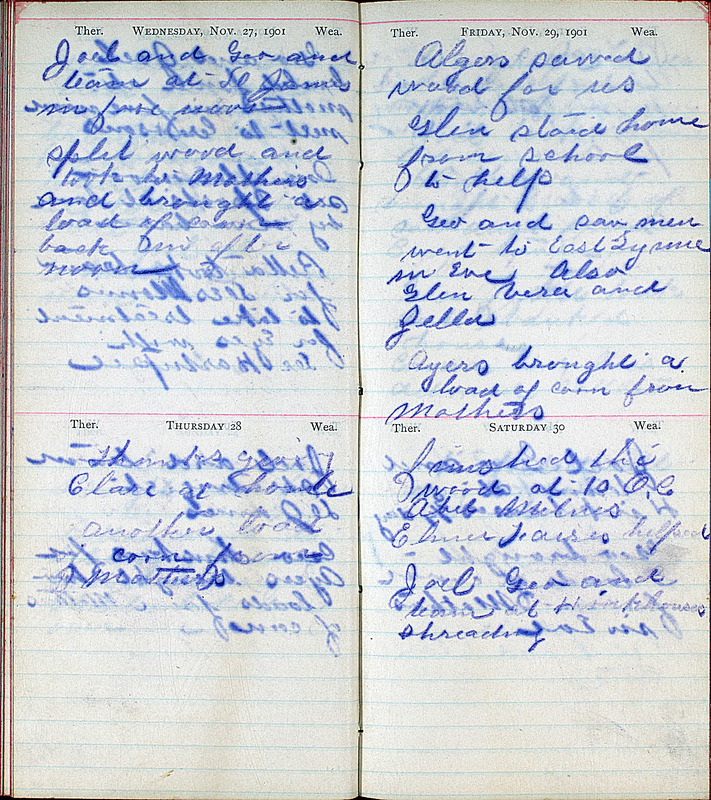 Ther. WEDNESDAY, NOV. 27, 1901 Wea.
Joel and Geo and
team at
in fore noon
split wood and
took to Mothers
and brought a
load of corn
back in after
noon
Ther. THURSDAY 28 Wea.
thanksgiving
Clare at home
another load
corn from
Mothers
Ther. FRIDAY, NOV. 29, 1901 Wea.
Algers sawed
wood for us
Glen staid home
from school
to help
Geo and saw men
went to East Lynne
in Eve Also
Glen Vera and
Zella
Ayers brought a
load of corn from
Mothers
Ther. SATURDAY 30 Wea.
finished the
wood at 10 O,C
Abel Milnes
Elmer helped
Joel Geo and
team at
shreading